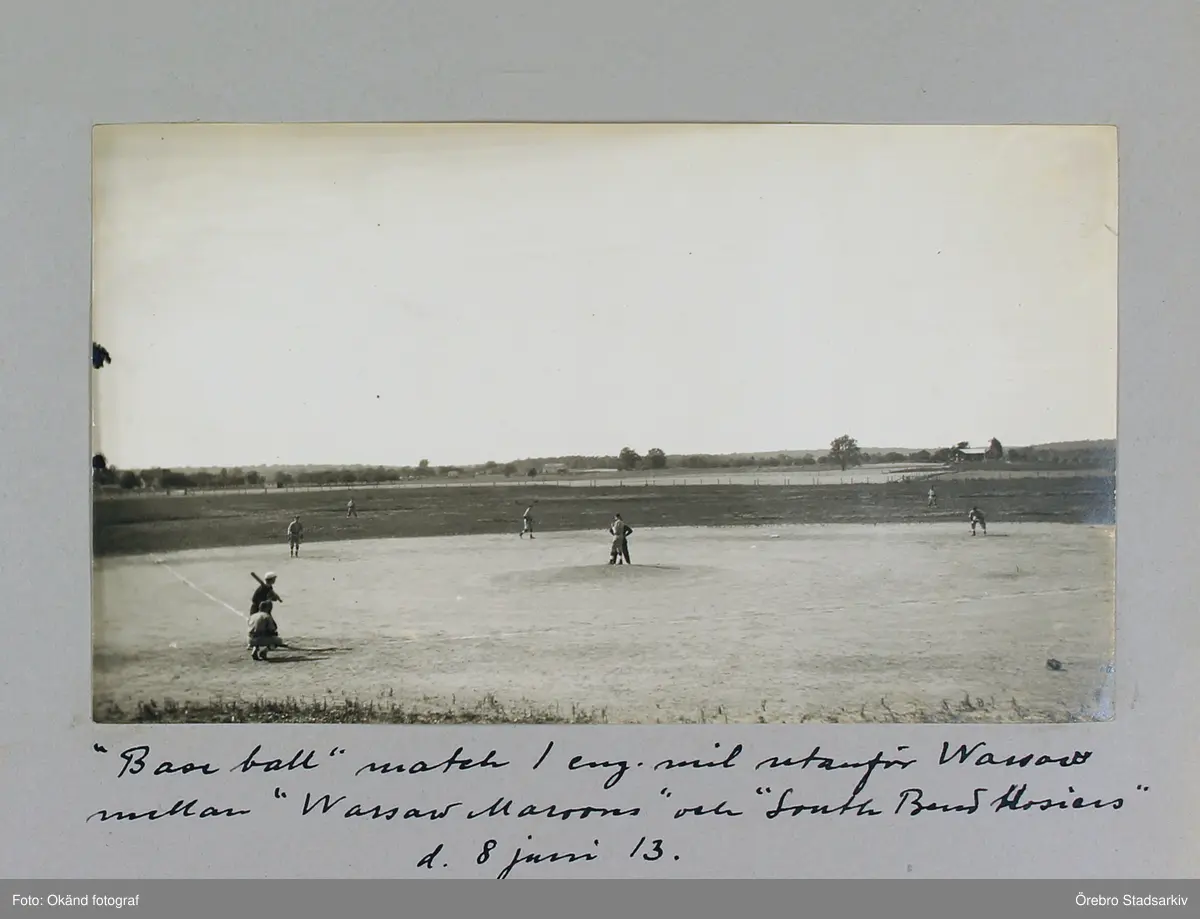 "Base ball" match 1 eng. mil utanför Warsaw
mellan "Warsaw Maroons" och "South Bend Hosiers"
d. 8 juni 13.
Foto: Okänd fotograf
Örebro Stadsarkiv